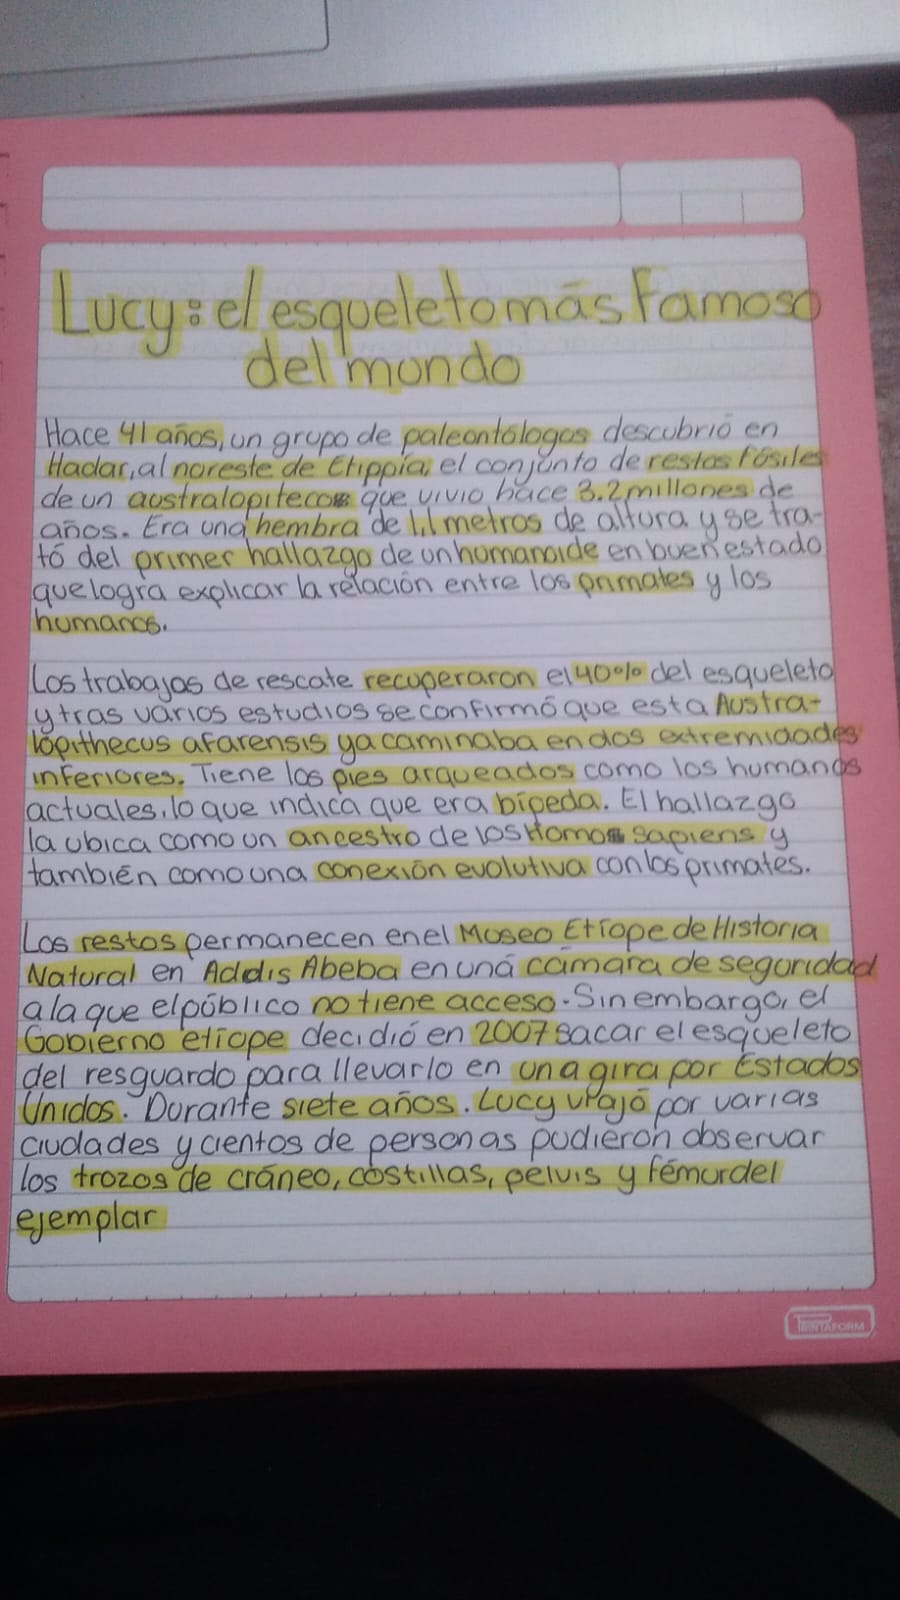 Lucy: el esqueleto más famoso
del mundo
Hace 41 años, un grupo de paleontólogos descubrió en
Hadar, al noreste de Etippía, el conjunto de restos fósiles
de un australopitecos que vivio hace 3.2 millones de
años. Era una hembra de 1,1 metros de altura y se tra-
tó del primer hallazgo de un humanoide en buen estado
que logra explicar la relación entre los primates y los
humanos.
Los trabajos de rescate recuperaron el 40% del esqueleto
y tras varios estudios se confirmó que esta Austra-
lopithecus afarensis ya caminaba en dos extremidades
inferiores. Tiene los pies arqueados como los humanos
actuales, lo que indica que era bípeda. El hallazgo
la ubica como un ancestro de los Homos sapiens y
también como una conexión evolutiva con los primates.
Los restos permanecen en el Museo Etíope de Historia
Natural en Addis Abeba en una cámara de seguridad
a la que el público no tiene acceso. Sin embargo, el
Gobierno etíope decidió en 2007 sacar el esqueleto
del resguardo para llevarlo en una gira por Estados
Unidos. Durante siete años. Lucy viajó por varias
ciudades y cientos de personas pudieron observar
los trozos de cráneo, costillas, pelvis y fémur del
ejemplar
PRINTAFORM